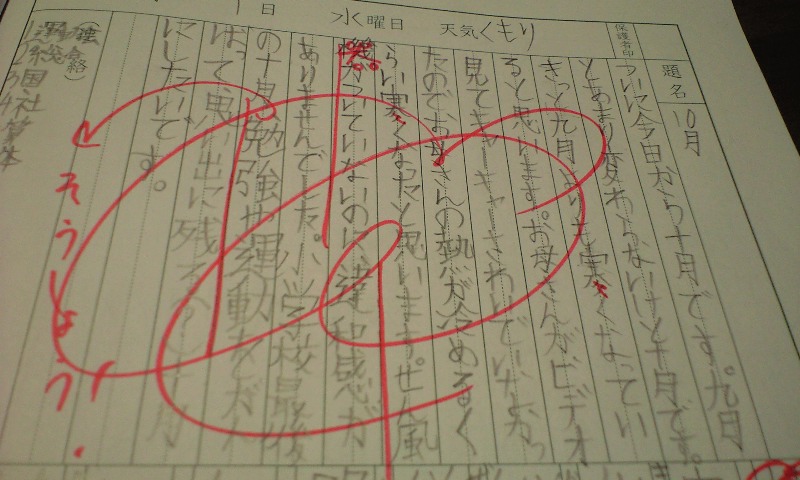 1日 水曜日 天気くもり
保護者印
題名 10月
ついに今日から十月です。九月
とあまり変わらないけど十月です。
きっと九月よりも寒くなってい
ると思います。お母さんがビデオ
見てキャーキャーさわいでいなかっ
たのでお母さんの熱が冷めるく
らい寒くなったと思います。ぜん風
機がついていないのに、違和感が
ありませんでした。小学校最後
の十月勉強も運動もがん
ばって、思い出に残る十月
にしたいです。
そうしよう.